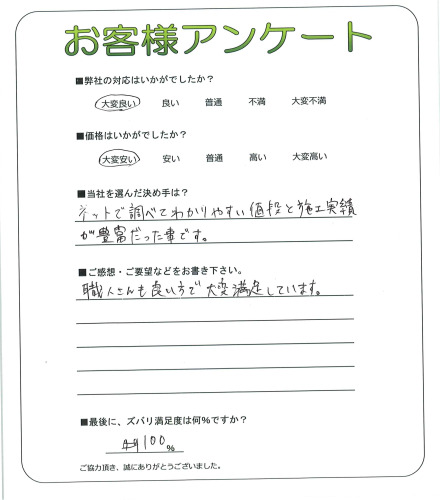 お客様アンケート
■弊社の対応はいかがでしたか?
大変良い 良い 普通 不満 大変不満
■価格はいかがでしたか?
大変安い 安い 普通 高い 大変高い
■当社を選んだ決め手は?
ネットで調べてわかりやすい値段と施工実績
が豊富だった事です。
■ご感想・ご要望などをお書き下さい。
職人さんも良い方で大変満足しています。
■最後に、ズバリ満足度は何%ですか?
100%
ご協力頂き、誠にありがとうございました。